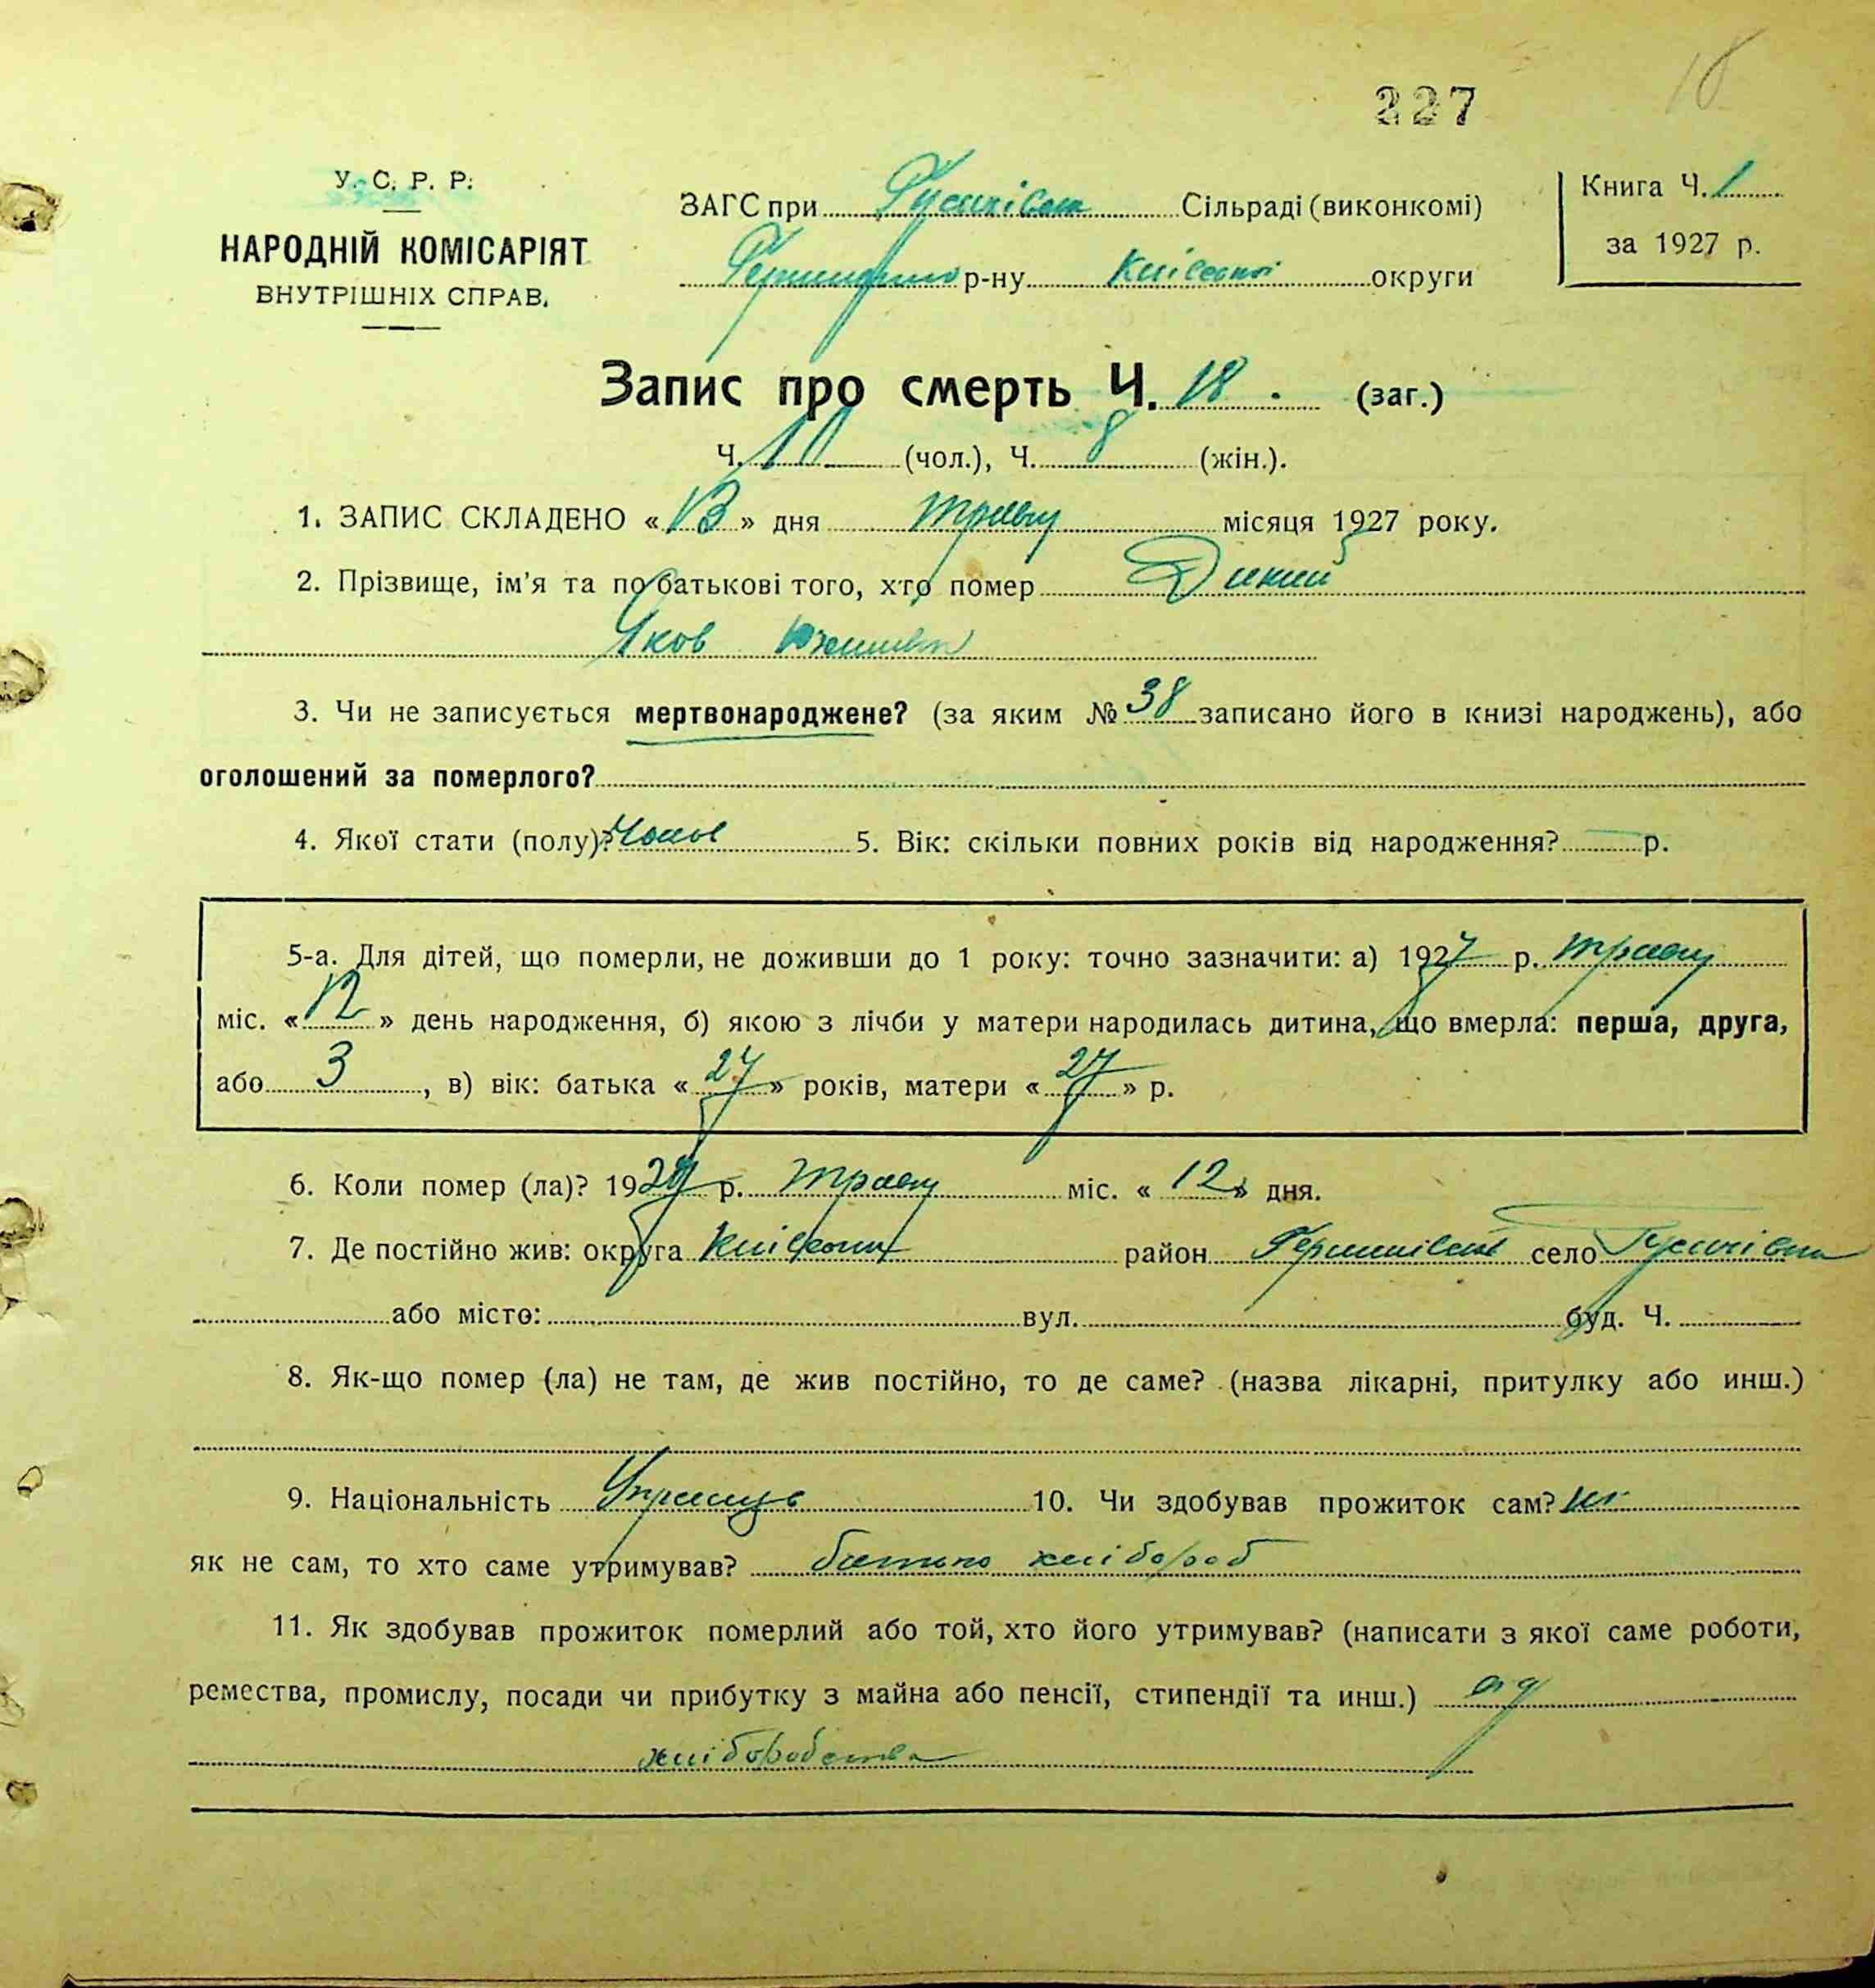 18
227
У. С. Р. Р.
НАРОДНІЙ КОМІСАРІЯТ
ВНУТРІШНІХ СПРАВ.
ЗАГС при Сільраді (виконкомі)
р-ну Київської округи
Книга Ч. 1
за 1927 р.
Запис про смерть Ч. 18. (заг.)
Ч. 10 (чол.), Ч. 8 (жін.).
1. ЗАПИС СКЛАДЕНО « 13 » дня травня місяця 1927 року.
2. Прізвище, ім'я та по батькові того, хто помер Дикий
Яков
3. Чи не записується мертвонароджене? (за яким № 38 записано його в книзі народжень), або
оголошений за померлого?
4. Якої стати (полу)? Чолов 5. Вік: скільки повних років від народження? — р.
5-а. Для дітей, що померли, не доживши до 1 року: точно зазначити: а) 1927 р. травня
міс. « 12 » день народження, б) якою з лічби у матери народилась дитина, що вмерла: перша, друга,
або 3, в) вік: батька « 27 » років, матери « 27 » р.
6. Коли помер (ла)? 1927 р. травня міс. « 12 » дня.
7. Де постійно жив: округа Київська район село
або місто: вул. буд. Ч.
8. Як-що помер (ла) не там, де жив постійно, то де саме? (назва лікарні, притулку або инш.)
9. Національність Українець 10. Чи здобував прожиток сам? ні
як не сам, то хто саме утримував? батько хлібороб
11. Як здобував прожиток померлий або той, хто його утримував? (написати з якої саме роботи,
ремества, промислу, посади чи прибутку з майна або пенсії, стипендії та инш.) од
хліборобства